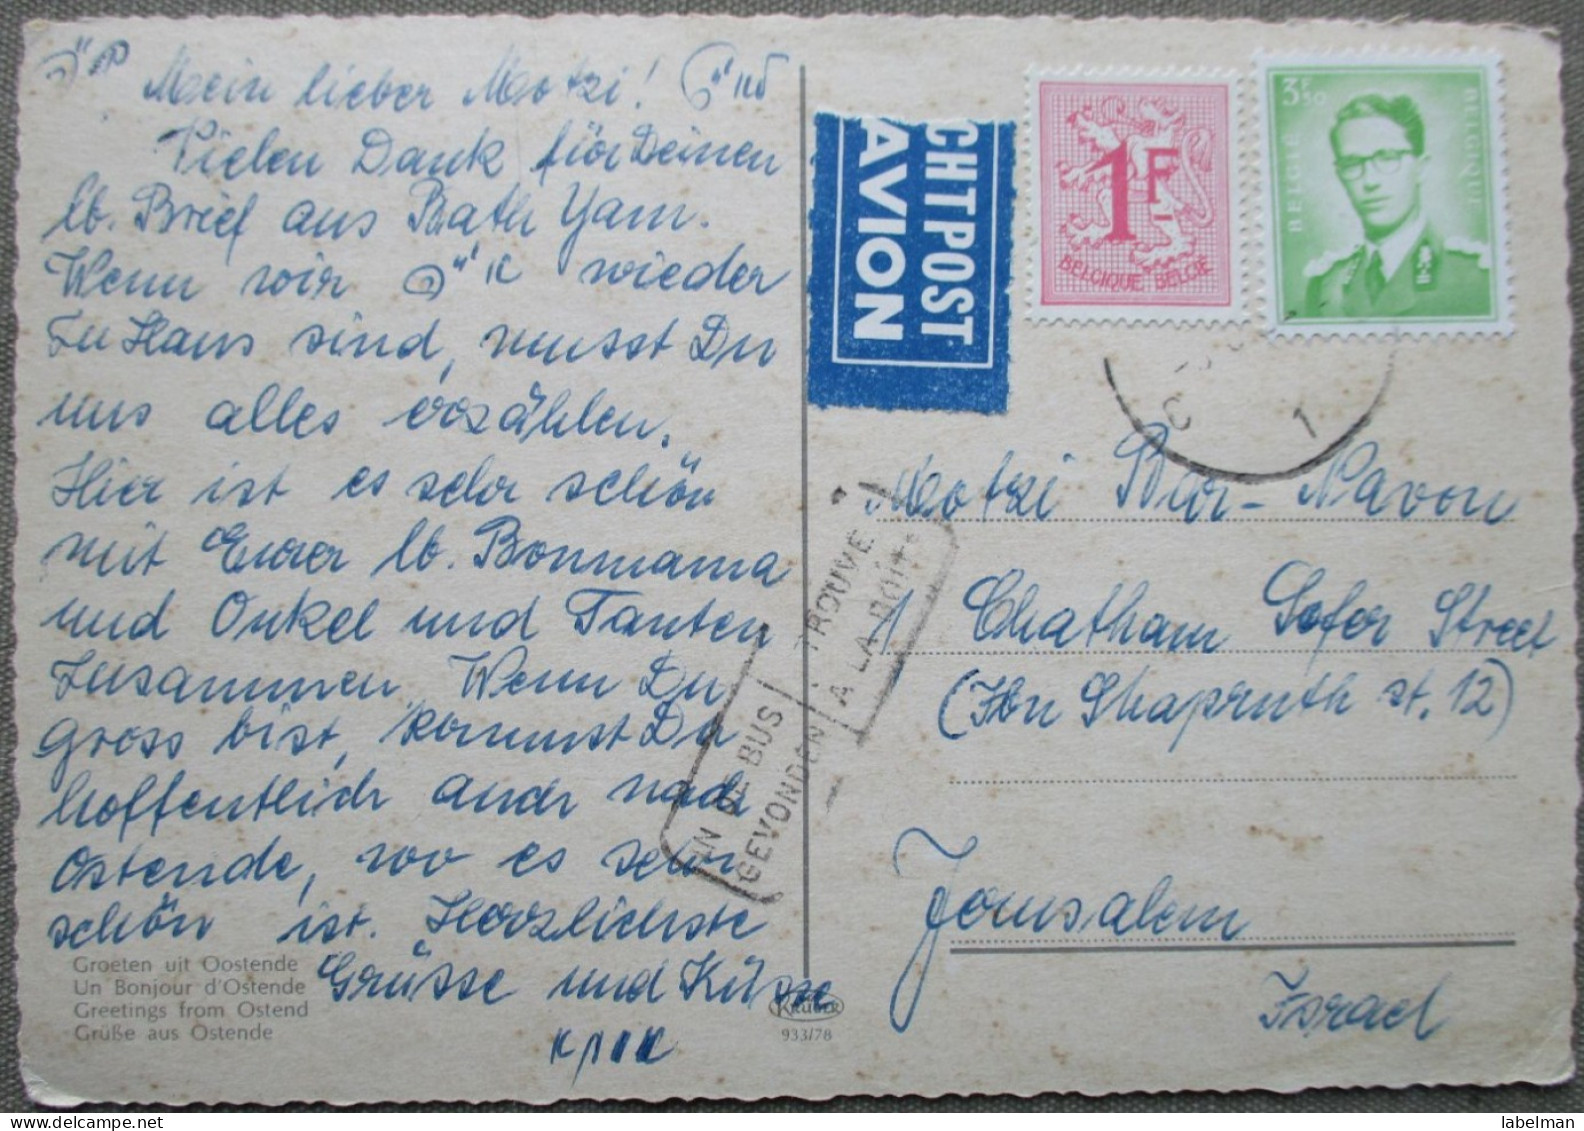 Mein lieber Motzi!
Vielen Dank für Deinen
lb. Brief aus Bath Yam.
Wenn wir אי"ה wieder
zu Haus sind, musst Du
uns alles erzählen.
Hier ist es sehr schön
mit Eurer lb. Bonmama
und Onkel und Tanten
zusammen. Wenn Du
gross bist, kommst Du
hoffentlich auch nach
Ostende, wo es sehr
schön ist. Herzlichste
Grüsse und Küsse
Groeten uit Oostende
Un Bonjour d'Ostende
Greetings from Ostend
Grüße aus Ostende
KRÜGER
933/78
CHTPOST
AVION
1F
BELGIQUE BELGIE
3F50
BELGIË
BELGIQUE
1
TROUVE
A LA BOITE
IN DE BUS
GEVONDEN
Motzi Bar-Navon
Chatham Sofer Street
(Ibn Shapruth st. 12)
Jerusalem
Israel
labelman